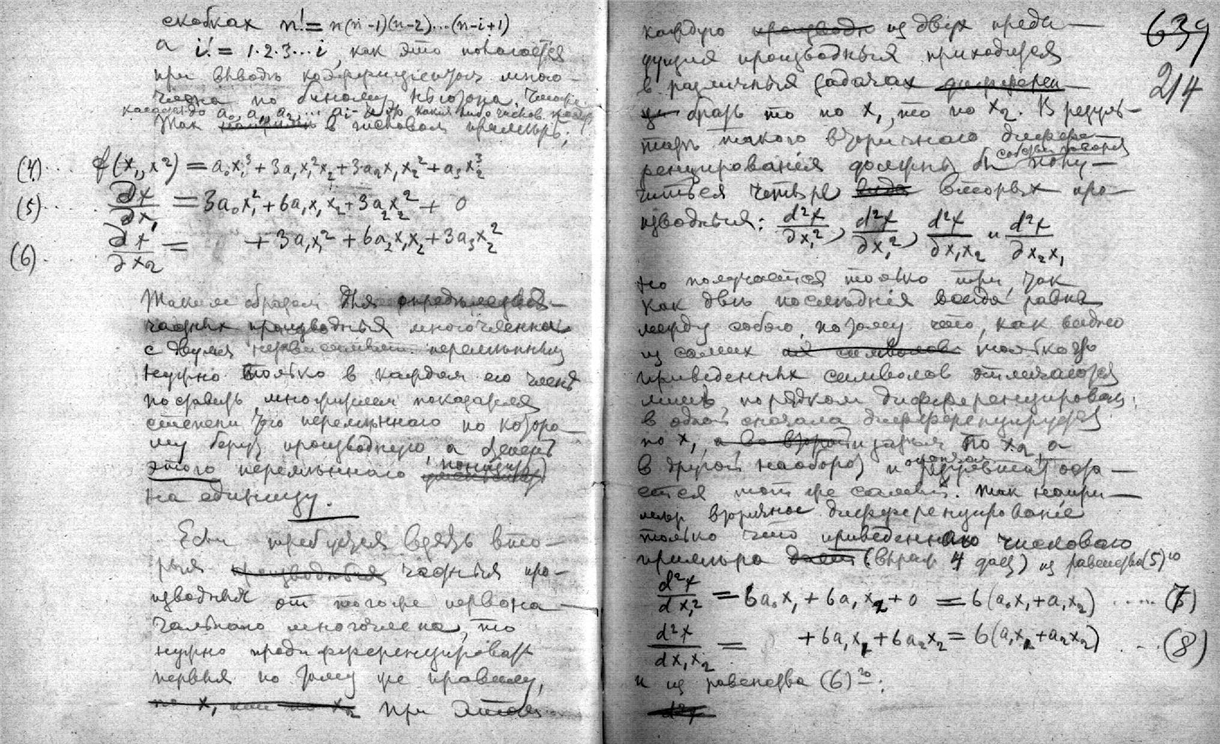 скобках n! = n(n-1)(n-2)...(n-i+1)
а i! = 1·2·3...i, как это полагается
при выводе коэффициентов много-
члена по биному Ньютона.
Так в числовом примере:
(4)... f(x₁,x²) = a₀x₁³ + 3a₁x₁²x₂ + 3a₂x₁x₂² + a₃x₂³
(5)... ∂f/∂x₁ = 3a₀x₁² + 6a₁x₁x₂ + 3a₂x₂² + 0
(6)... ∂f/∂x₂ = + 3a₁x₁² + 6a₂x₁x₂ + 3a₃x₂²
Таким образом для
частных производных многочлена
с двумя переменными
нужно только в каждом его члене
поставить множителем показателя
степени того переменного по которо-
му берут производную, а степень
этого переменного понизить
на единицу.
Если требуется взять вто-
рыя производныя частныя про-
изводныя от того же первона-
чальнаго многочлена, то
нужно продифференцировать
первыя по тому же правилу,
по x₁ или по x₂ при этом
каждую из двух преды-
дущих производных приходится
в различных задачах
брать то по x₁, то по x₂. В резуль-
тате такого вторичного диффе-
ренцирования должны бы собственно говоря полу-
читься четыре вторых про-
изводных: d²f/∂x₁², d²f/∂x₁², d²f/∂x₁x₂ и d²f/∂x₂x₁
но получается только три, так
как две последния всегда равны
между собою, потому что, как видно
из самих только что
приведенных символов отличаются
лишь порядком дифференцирован.
в одной сначала дифференцируется
по x₁, а затем по x₂ а
в другой наоборот, и
ется тот же самый. Так напри-
мер вторичное дифференцирование
только что приведеннаго числоваго
примера дает (выраж. 4 дает) из равенства (5)ᵍᵒ
d²f/dx₁² = 6a₀x₁ + 6a₁x₂ + 0 = 6(a₀x₁ + a₁x₂) ..... (7)
d²f/dx₁x₂ = + 6a₁x₁ + 6a₂x₂ = 6(a₁x₁ + a₂x₂) ... (8)
и из равенства (6)ᵍᵒ:
d²f
639
214